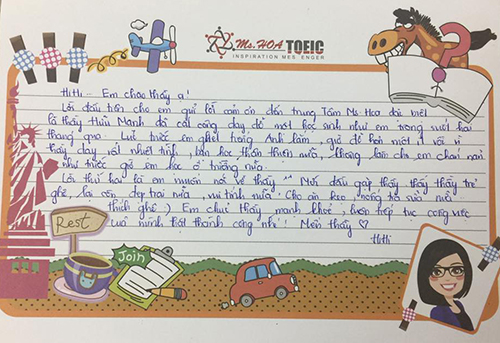 Ms. HOA TOEIC
INSPIRATION MESSENGER
HiHi - Em chào thầy ạ!
Lời đầu tiên cho em gửi lời cảm ơn đến trung Tâm Ms Hoa đặc biệt
là thầy Hữu Mạnh đã có công dạy dỗ một học sinh như em trong suốt hai
tháng qua. Lúc trước em ghét tiếng Anh lắm, giờ đỡ hơn một tí rồi vì
thầy dạy rất nhiệt tình, bạn học thân thiện nữa, không làm cho em chán nản
như trước giờ em học ở trường nữa.
Lời thứ hai là em muốn nói về thầy Mới đầu gặp thầy thấy thầy trẻ
ghê, lại còn đẹp trai nữa, vui tính nữa. Cho ăn kẹo, nóng trà sữa nữa
thích ghê) Em chúc thầy mạnh khoẻ, luôn tiếp tục công việc
của mình thật thành công nhé! Mến thầy ♡
HiHi
Rest
Join